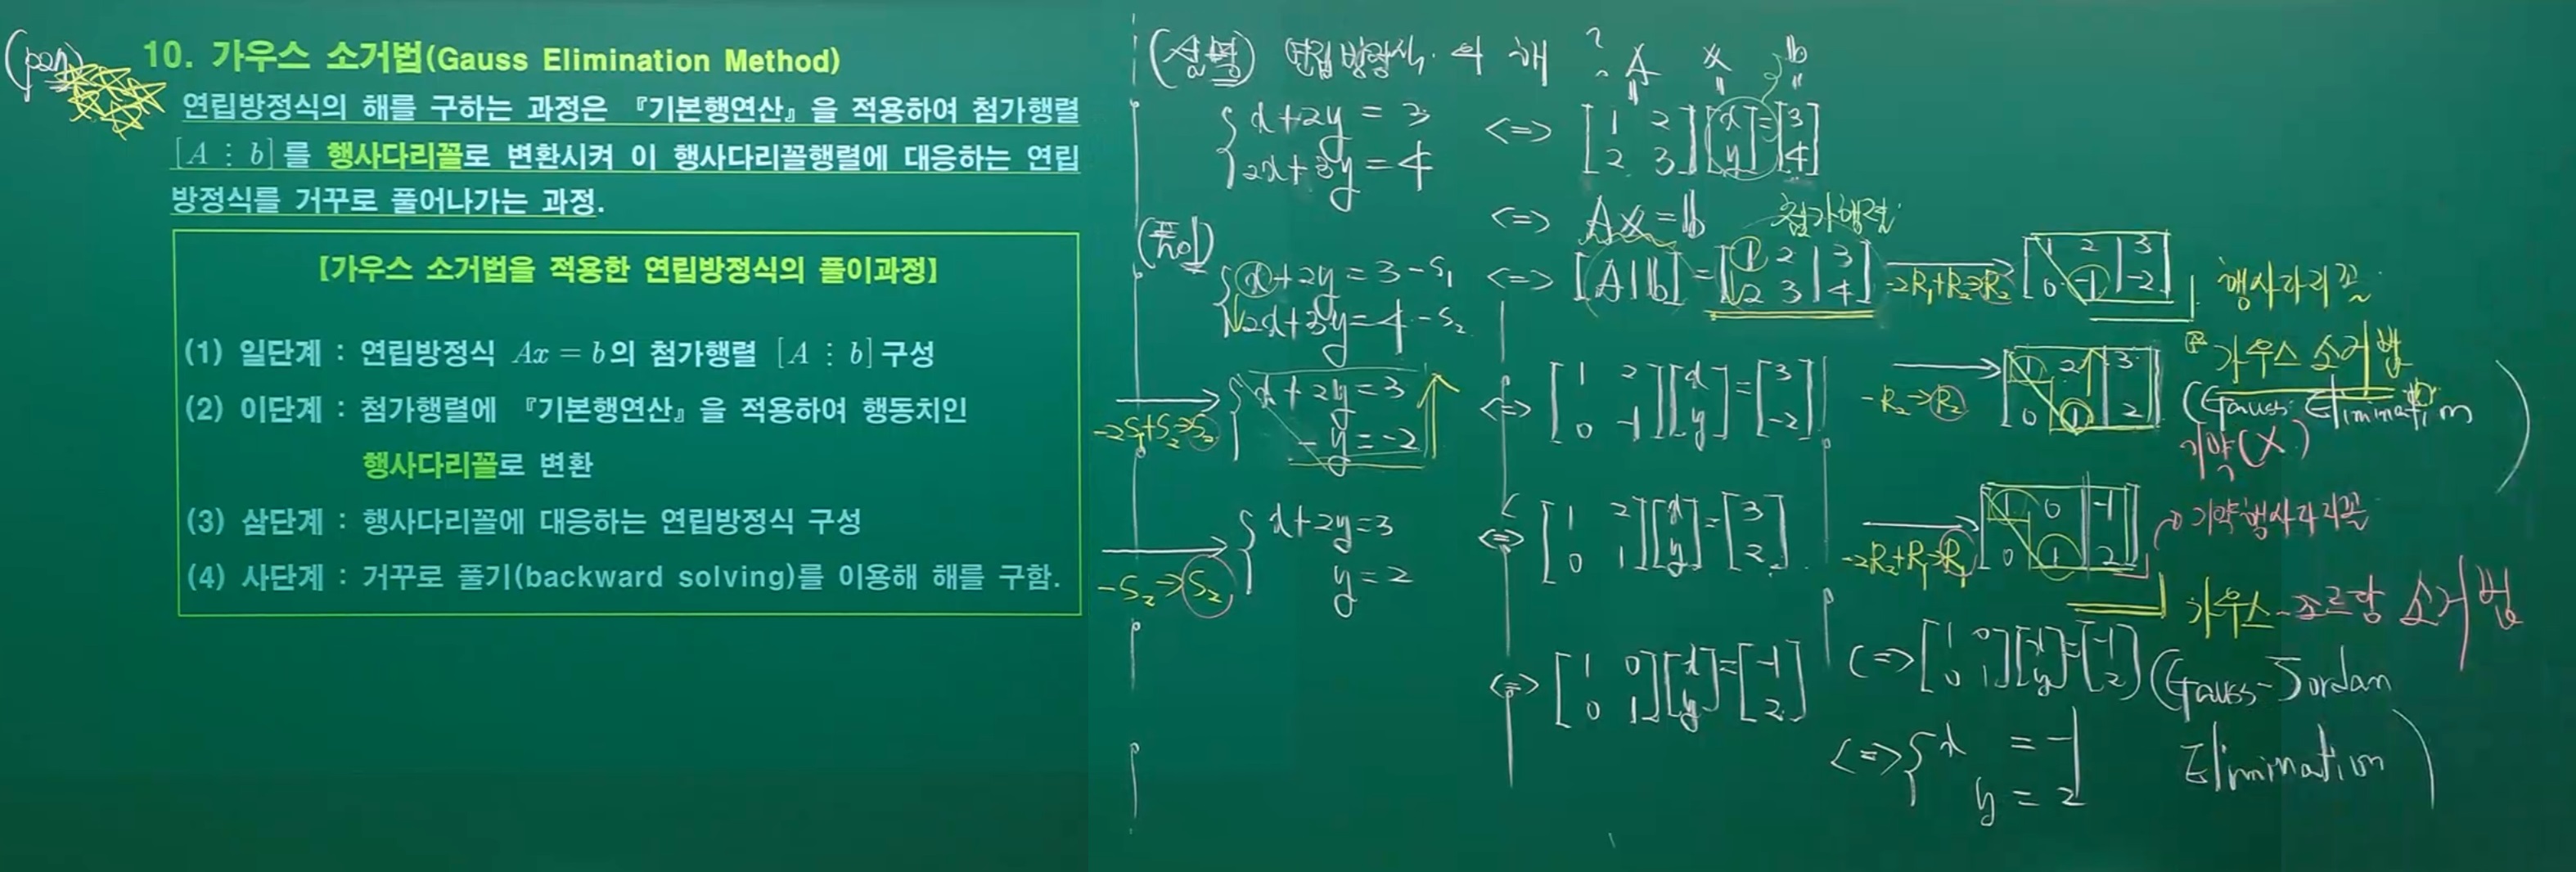 (pan)
10. 가우스 소거법(Gauss Elimination Method)
연립방정식의 해를 구하는 과정은 『기본행연산』을 적용하여 첨가행렬
[A ⋮ b]를 행사다리꼴로 변환시켜 이 행사다리꼴행렬에 대응하는 연립
방정식를 거꾸로 풀어나가는 과정.
【가우스 소거법을 적용한 연립방정식의 풀이과정】
(1) 일단계 : 연립방정식 Ax = b의 첨가행렬 [A ⋮ b]구성
(2) 이단계 : 첨가행렬에 『기본행연산』을 적용하여 행동치인
행사다리꼴로 변환
(3) 삼단계 : 행사다리꼴에 대응하는 연립방정식 구성
(4) 사단계 : 거꾸로 풀기(backward solving)를 이용해 해를 구함.
(설명) 연립방정식의 해 ?
x+2y = 3
2x+3y = 4
(풀이)
x+2y = 3 - S₁
2x+3y = 4 - S₂
-2S₁+S₂⇒S₂
x+2y = 3
-y = -2
-S₂⇒S₂
x+2y=3
y=2
A x b
<=> [1 2; 2 3][x; y]=[3; 4]
<=> Ax = b
첨가행렬
<=> [A|b] = [1 2 | 3; 2 3 | 4]
-2R₁+R₂⇒R₂
[1 2 | 3; 0 -1 | -2]
행사다리꼴
<=> [1 2; 0 -1][x; y]=[3; -2]
-R₂⇒R₂
[1 2 | 3; 0 1 | 2]
가우스 소거법
(Gauss Elimination)
기약(X)
<=> [1 2; 0 1][x; y]=[3; 2]
-2R₂+R₁⇒R₁
[1 0 | -1; 0 1 | 2]
기약행사다리꼴
가우스-조르당 소거법
<=> [1 0; 0 1][x; y]=[-1; 2]
<=> [1 0; 0 1][x; y]=[-1; 2]
(Gauss-Jordan
Elimination)
<=> x = -1
y = 2